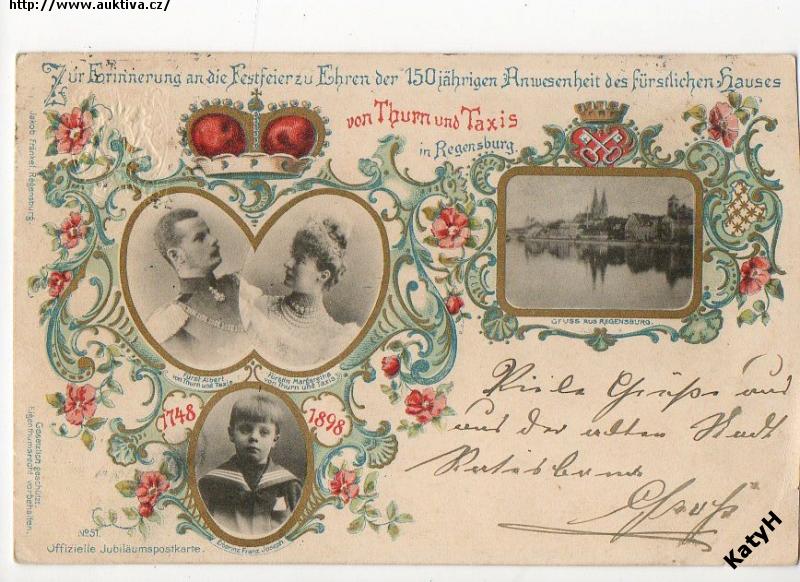 http://www.auktiva.cz/
Zur Erinnerung an die Festfeier zu Ehren der 150jährigen Anwesenheit des fürstlichen Hauses
von Thurn und Taxis
in Regensburg.
Jakob Fränkel, Regensburg.
Fürst Albert
von Thurn und Taxis
Fürstin Margarethe
von Thurn und Taxis
GRUSS AUS REGENSBURG.
1748
1898
Viele Grüße aus
aus der alten Stadt
Gesetzlich geschützt.
Eigenthumsrecht vorbehalten.
Erbprinz Franz Joseph
No 51.
Offizielle Jubiläumspostkarte.
KatyH